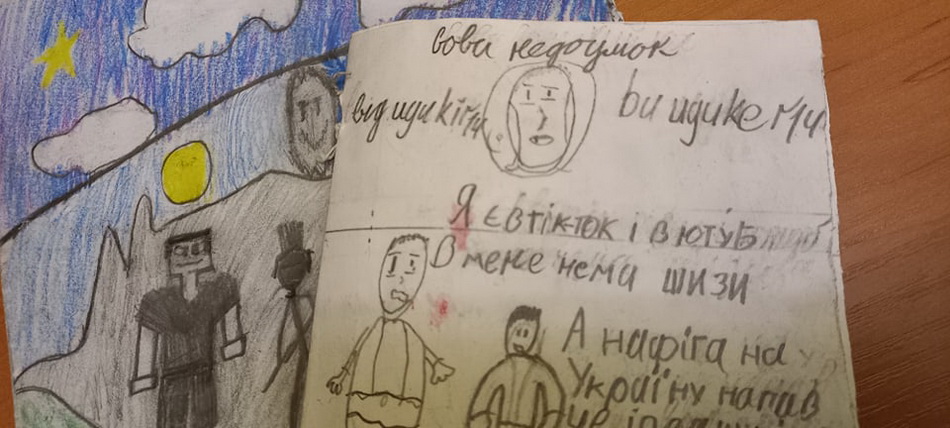 вова недоумок
від идикігіч
ви идикегіч
Я є в тік-ток і в ютуб
В мене нема шизи
А нафіга на
Україну напав